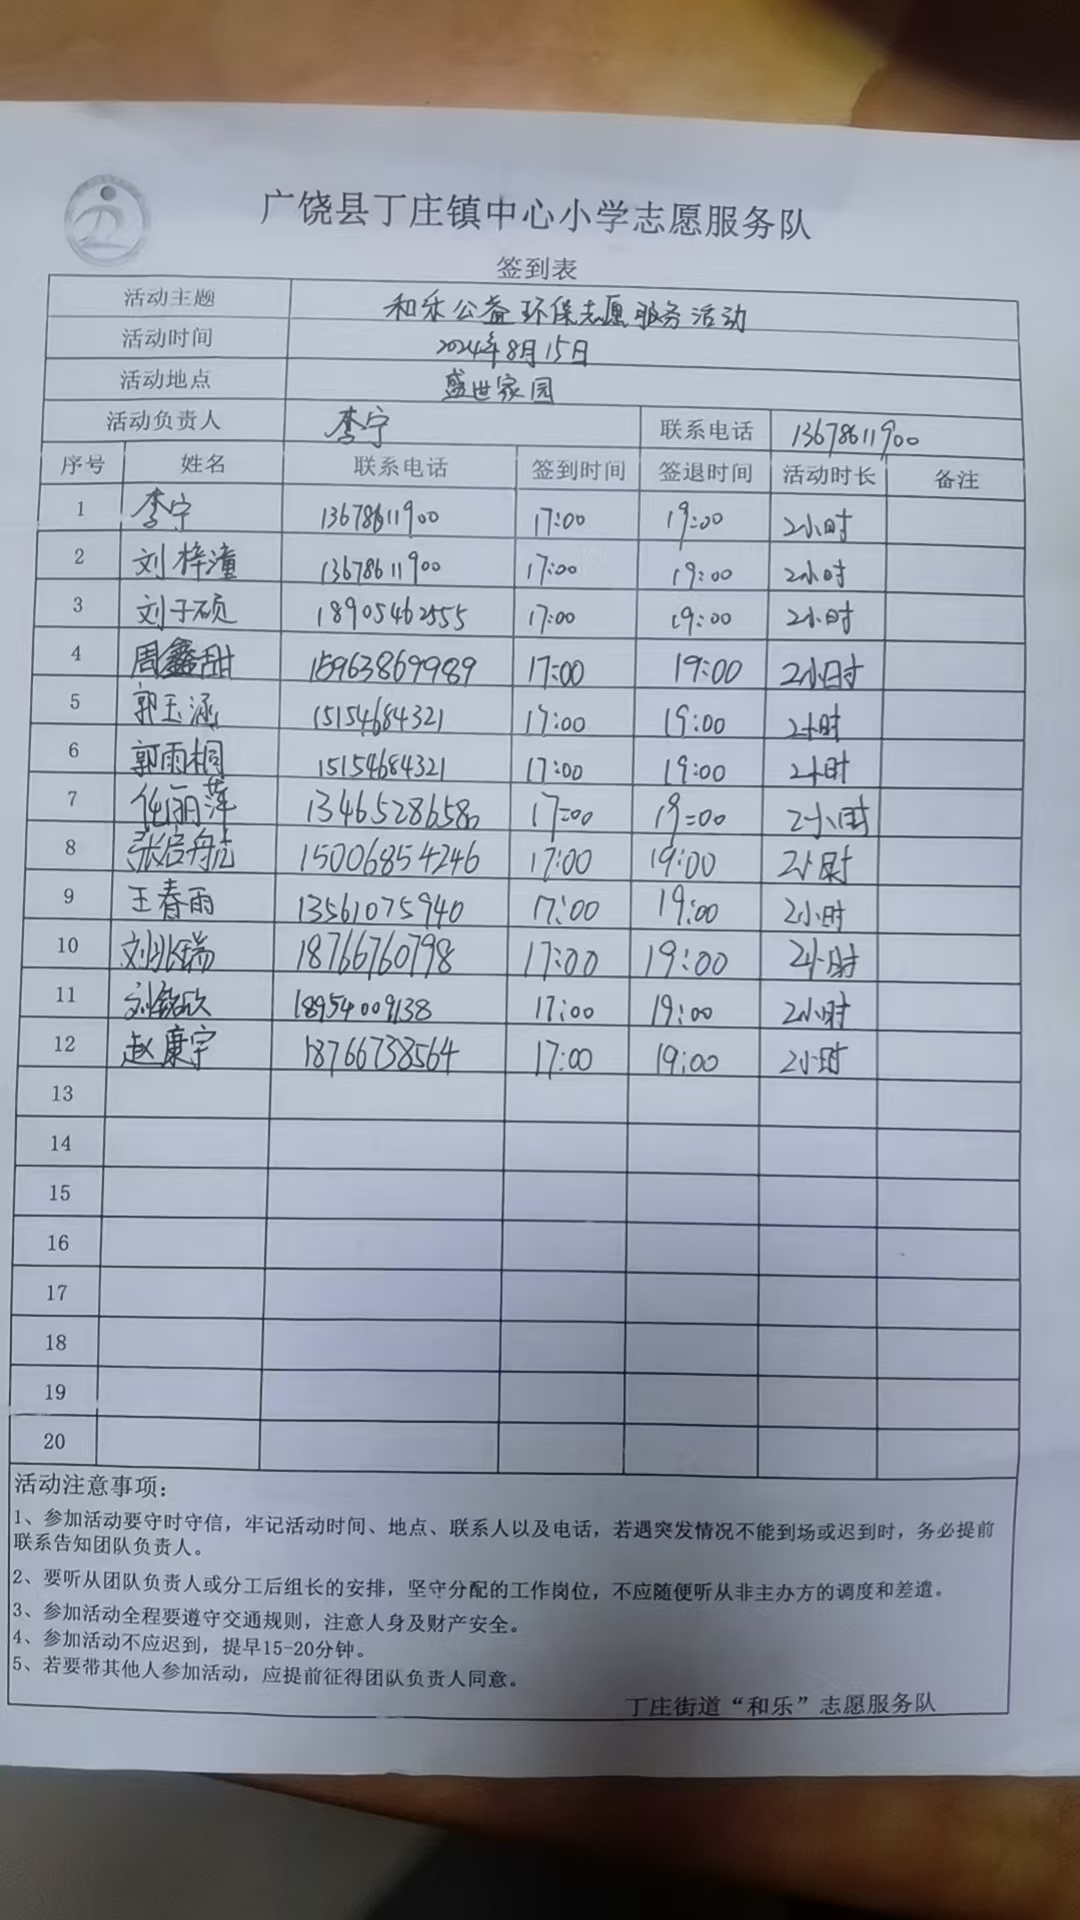 广饶县丁庄镇中心小学志愿服务队
签到表
活动主题 和乐公益环保志愿服务活动
活动时间 2024年8月15日
活动地点 盛世家园
活动负责人 李宁 联系电话 13678611900
序号 姓名 联系电话 签到时间 签退时间 活动时长 备注
1 李宁 13678611900 17:00 19:00 2小时
2 刘梓潼 13678611900 17:00 19:00 2小时
3 刘子硕 18905462555 17:00 19:00 2小时
4 周鑫甜 15963869989 17:00 19:00 2小时
5 郭玉涵 15154684321 17:00 19:00 2小时
6 郭雨桐 15154684321 17:00 19:00 2小时
7 任丽萍 13465286580 17:00 19:00 2小时
8 张启航 15006854246 17:00 19:00 2小时
9 王春雨 13561075940 17:00 19:00 2小时
10 18766760798 17:00 19:00 2小时
11 刘铭欣 18954009138 17:00 19:00 2小时
12 赵康宇 18766738564 17:00 19:00 2小时
13
14
15
16
17
18
19
20
活动注意事项：
1、参加活动要守时守信，牢记活动时间、地点、联系人以及电话，若遇突发情况不能到场或迟到时，务必提前
联系告知团队负责人。
2、要听从团队负责人或分工后组长的安排，坚守分配的工作岗位，不应随便听从非主办方的调度和差遣。
3、参加活动全程要遵守交通规则，注意人身及财产安全。
4、参加活动不应迟到，提早15-20分钟。
5、若要带其他人参加活动，应提前征得团队负责人同意。
丁庄街道“和乐”志愿服务队